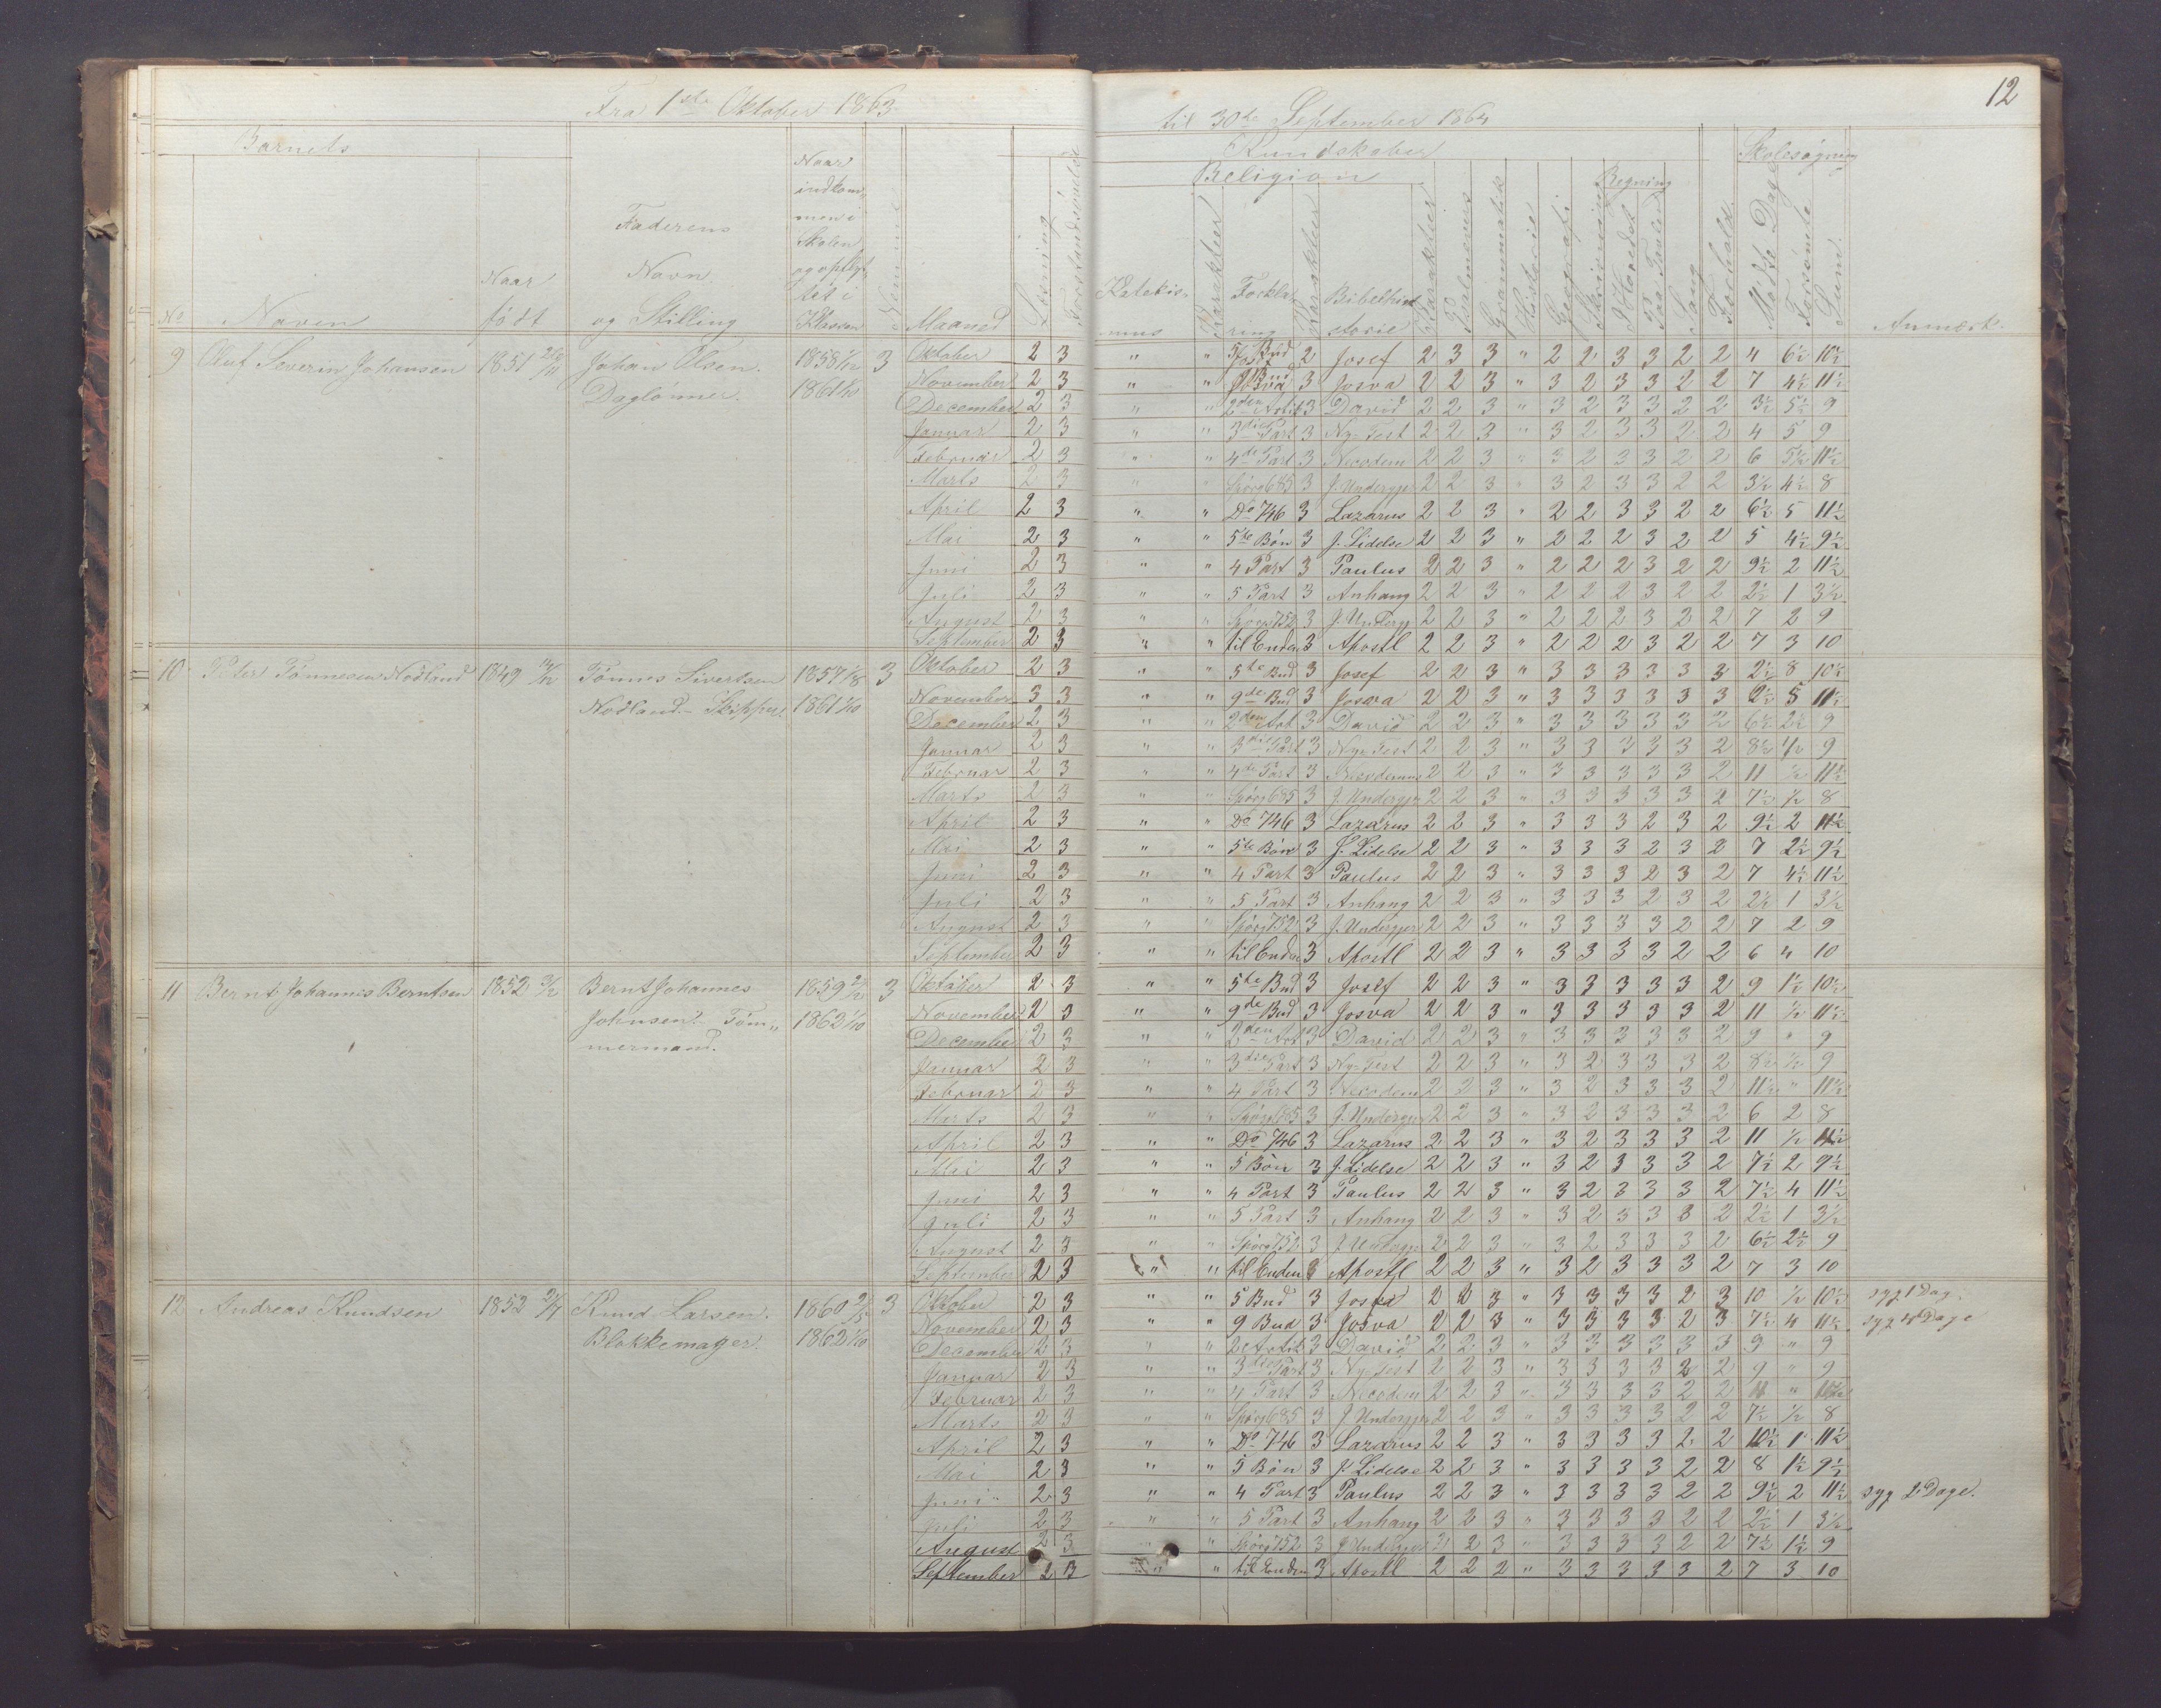 12
Fra 1ste Oktober 1863 til 30te September 1864
Barnets Kundskaber Skolesøgning
Religion Regning
No Navn Naar født Faderens Navn og Stilling Naar indkommen i Skolen og opflyttet i Klassen Maaned Læsning Forstandsøvelse Katekismus Karakteer Forklaring Karakteer Bibelhistorie Karakteer Psalmevers Grammatik Historie Geografi Skrivning I Hovedet Paa Tavlen Sang Forhold Mødte Dage Forsømte Sum. Anmærk.
9 Oluf Severin Johansen 1851 Johan Olsen. 1858 3 Oktober 2 3 " " 5 Bud 2 Josef 2 3 3 " 2 2 3 3 2 2 4 6½ 10½
Daglønner. 1861 1/10 November 2 3 " " 3 Josva 2 2 3 " 3 2 3 3 2 2 7 4½ 11½
December 2 3 " " 2den Artik 3 David 2 2 3 " 3 2 3 3 2 2 3½ 5½ 9
Januar 2 3 " " 3die Part 3 Ny-Test 2 2 3 " 3 2 3 3 2 2 4 5 9
Februar 2 3 " " 4de Part 3 Necodem 2 2 3 " 3 2 3 3 2 2 6 5½ 11½
Marts 2 3 " " Spørg 685 3 J. Undergjer 2 2 3 " 3 2 3 3 2 2 3½ 4½ 8
April 2 3 " " Do 746 3 Lazarus 2 2 3 " 2 2 3 3 2 2 6½ 5 11½
Mai 2 3 " " 5te Bøn 3 J. Lidelse 2 2 3 " 2 2 2 3 2 2 5 4½ 9½
Juni 2 3 " " 4 Part 3 Paulus 2 2 3 " 2 2 2 3 2 2 9½ 2 11½
Juli 2 3 " " 5 Part 3 Anhang 2 2 3 " 2 2 2 3 2 2 2½ 1 3½
August 2 3 " " Spørg 752 3 J. Undergj 2 2 3 " 2 2 2 3 2 2 7 2 9
September 2 3 " " til Enden 3 Apostl 2 2 3 " 2 2 2 3 2 2 7 3 10
10 Peter Tønnesen Nodland 1849 Tønnes Sivertsen 1857 3 Oktober 2 3 " " 5te Bud 3 Josef 2 2 3 " 3 3 3 3 3 3 2½ 8 10½
Nodland.- Skipper. 1861 1/10 November 3 3 " " 9de Bud 3 Josva 2 2 3 " 3 3 3 3 3 3 6½ 5 11½
December 2 3 " " 2den Art 3 David 2 2 3 " 3 3 3 3 3 2 6½ 2½ 9
Januar 2 3 " " 3die Part 3 Ny-Test 2 2 3 " 3 3 3 3 3 2 8½ ½ 9
Februar 2 3 " " 4de Part 3 Necodemus 2 2 3 " 3 3 3 3 3 2 11 ½ 11½
Marts 2 3 " " Spørg 685 3 J. Undergjer 2 2 3 " 3 3 3 3 3 2 7½ ½ 8
April 2 3 " " Do 746 3 Lazarus 2 2 3 " 3 3 3 2 3 2 9½ 2 11½
Mai 2 3 " " 5te Bøn 3 J. Lidelse 2 2 3 " 3 3 3 2 3 2 7 2½ 9½
Juni 2 3 " " 4 Part 3 Paulus 2 2 3 " 3 3 3 2 3 2 7 4½ 11½
Juli 2 3 " " 5 Part 3 Anhang 2 2 3 " 3 3 3 2 3 2 2½ 1 3½
August 2 3 " " Spørg 752 3 J. Undergjer 2 2 3 " 3 3 3 3 2 2 7 2 9
September 2 3 " " til Enden 3 Apostl 2 2 3 " 3 3 3 3 2 2 6 4 10
11 Bernt Johannes Berntsen 1852 Bernt Johannes 1859 3 Oktober 2 3 " " 5te Bud 3 Josef 2 2 3 " 3 3 3 3 3 2 9 1½ 10½
Johnsen.- Töm" 1862 1/10 November 2 3 " " 9de Bud 3 Josva 2 2 3 " 3 3 3 3 3 2 11 ½ 11½
mermand. December 2 3 " " 2den Art 3 David 2 2 3 " 3 3 3 3 3 2 9 " 9
Januar 2 3 " " 3die Part 3 Ny-Test 2 2 3 " 3 2 3 3 3 2 8½ ½ 9
Februar 2 3 " " 4 Part 3 Necodem 2 2 3 " 3 2 3 3 3 2 11½ " 11½
Marts 2 3 " " Spørg 685 3 J. Undergjer 2 2 3 " 3 2 3 3 3 2 6 2 8
April 2 3 " " Do 746 3 Lazarus 2 2 3 " 3 2 3 3 3 2 11 ½ 11½
Mai 2 3 " " 5 Bøn 3 J. Lidelse 2 2 3 " 3 2 3 3 3 2 7½ 2 9½
Juni 2 3 " " 4 Part 3 Paulus 2 2 3 " 3 2 3 3 3 2 7½ 4 11½
Juli 2 3 " " 5 Part 3 Anhang 2 2 3 " 3 2 3 3 3 2 2½ 1 3½
August 2 3 " " Spørg 752 3 J. Undergjer 2 2 3 " 3 2 3 3 3 2 6½ 2½ 9
September 2 3 " " til Enden 3 Apostl 2 2 3 " 3 2 3 3 3 2 7 3 10
12 Andreas Knudsen 1852 Knud Larsen. 1860 3 Oktober 2 3 " " 5 Bud 3 Josva 2 2 3 " 3 3 3 3 2 3 10 ½ 10½ syg 1 Dag.
Blokkemager. 1862 1/10 November 2 3 " " 9 Bud 3 Josva 2 2 3 " 3 3 3 3 2 3 7½ 4 11½ syg 4 Dage
December 2 3 " " 2 Artik 3 David 2 2 3 " 3 3 3 3 3 3 9 " 9
Januar 2 3 " " 3die Part 3 Ny-Test 2 2 3 " 3 3 3 3 2 2 9 " 9
Februar 2 3 " " 4 Part 3 Necodem 2 2 3 " 3 3 3 3 2 2 11 "
Marts 2 3 " " Spørg 685 3 J. Undergjer 2 2 3 " 3 3 3 3 2 2 7½ ½ 8
April 2 3 " " Do 746 3 Lazarus 2 2 3 " 3 3 3 3 2 2 10½ 1 11½
Mai 2 3 " " 5 Bøn 3 J. Lidelse 2 2 3 " 3 3 3 3 2 2 8 1½ 9½
Juni 2 3 " " 4 Part 3 Paulus 2 2 3 " 3 3 3 3 2 2 9½ 2 11½ syg 2 Dage.
Juli 2 3 " " 5 Part 3 Anhang 2 2 3 " 3 3 3 3 2 2 2½ 1 3½
August 2 3 " " Spørg 752 3 J. Undergjer 2 2 3 " 3 3 3 3 2 2 7½ 1½ 9
September 2 3 " " til Enden 3 Apostl 2 2 2 " 3 3 3 3 3 2 7 3 10